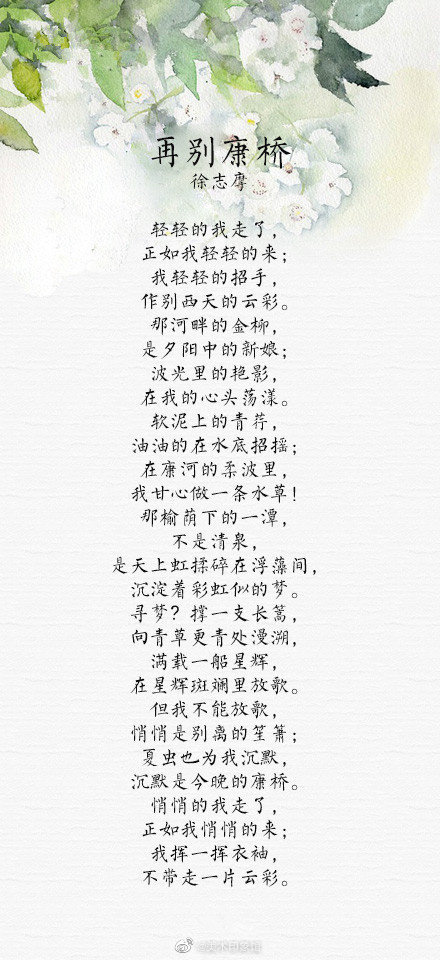 再别康桥
徐志摩
轻轻的我走了，
正如我轻轻的来；
我轻轻的招手，
作别西天的云彩。
那河畔的金柳，
是夕阳中的新娘；
波光里的艳影，
在我的心头荡漾。
软泥上的青荇，
油油的在水底招摇；
在康河的柔波里，
我甘心做一条水草！
那榆荫下的一潭，
不是清泉，
是天上虹揉碎在浮藻间，
沉淀着彩虹似的梦。
寻梦？撑一支长篙，
向青草更青处漫溯，
满载一船星辉，
在星辉斑斓里放歌。
但我不能放歌，
悄悄是别离的笙箫；
夏虫也为我沉默，
沉默是今晚的康桥。
悄悄的我走了，
正如我悄悄的来；
我挥一挥衣袖，
不带走一片云彩。